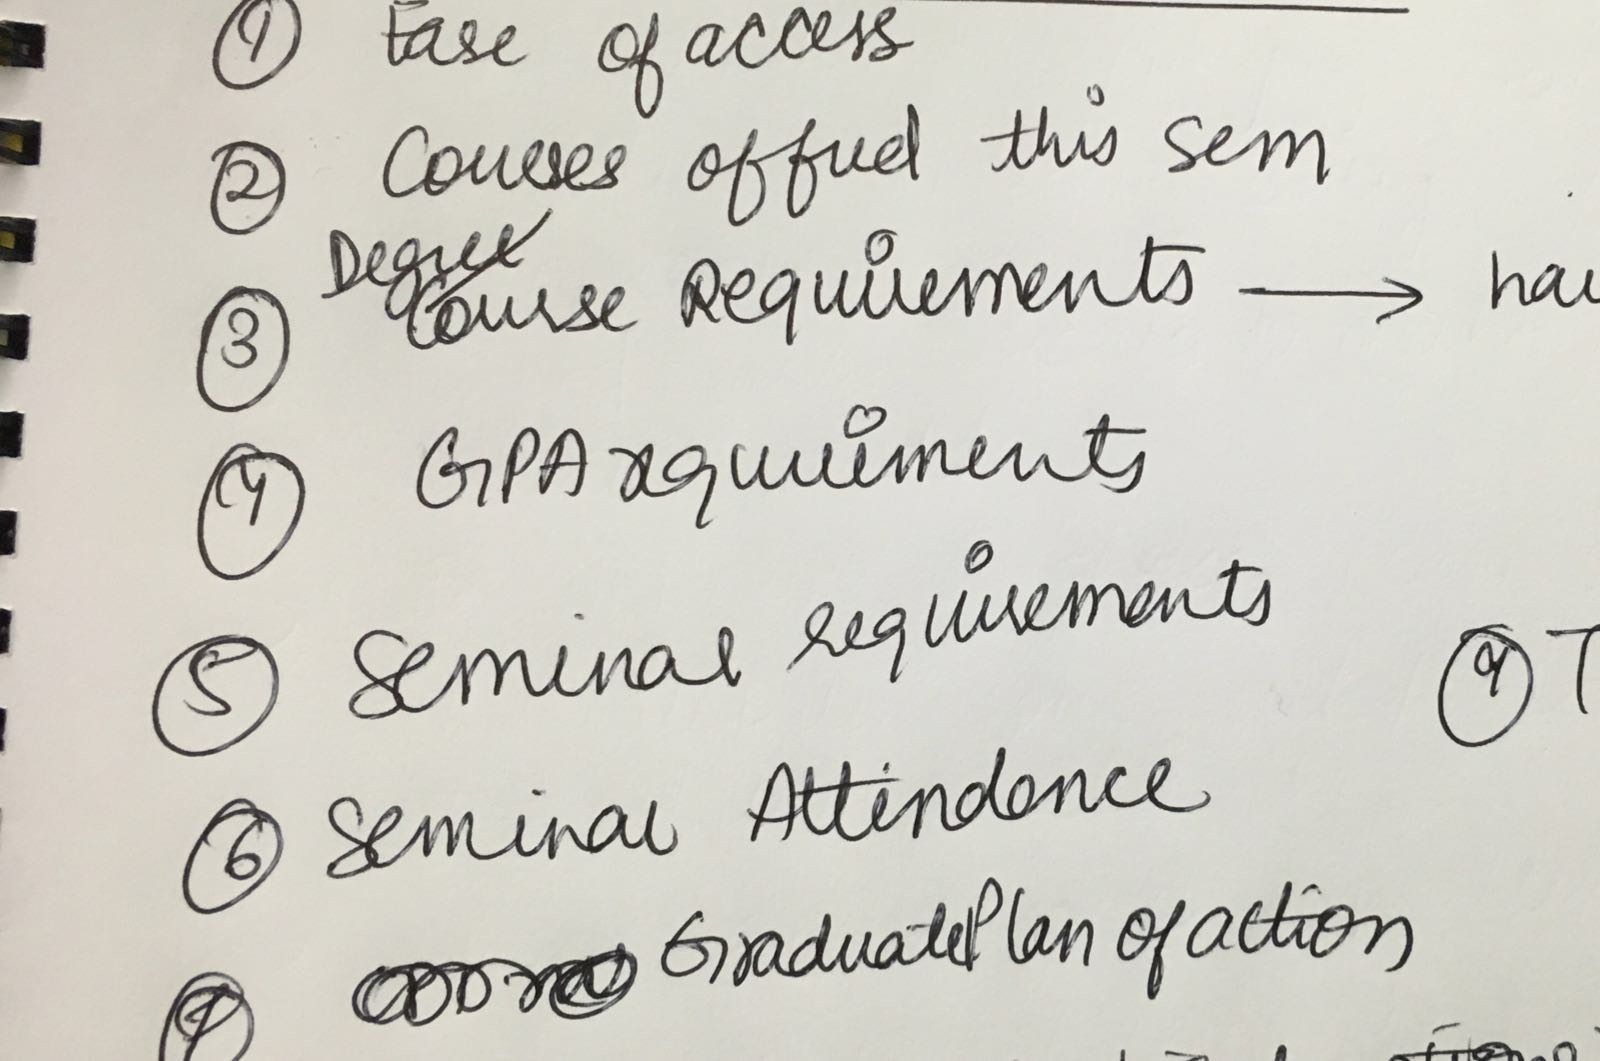 ① Ease of access
② Courses offered this sem
Degree
③ Course Requirements → hav
④ GPA requirements
⑤ Seminar requirements
⑨ T
⑥ Seminar Attendence
⑦ Graduate Plan of action